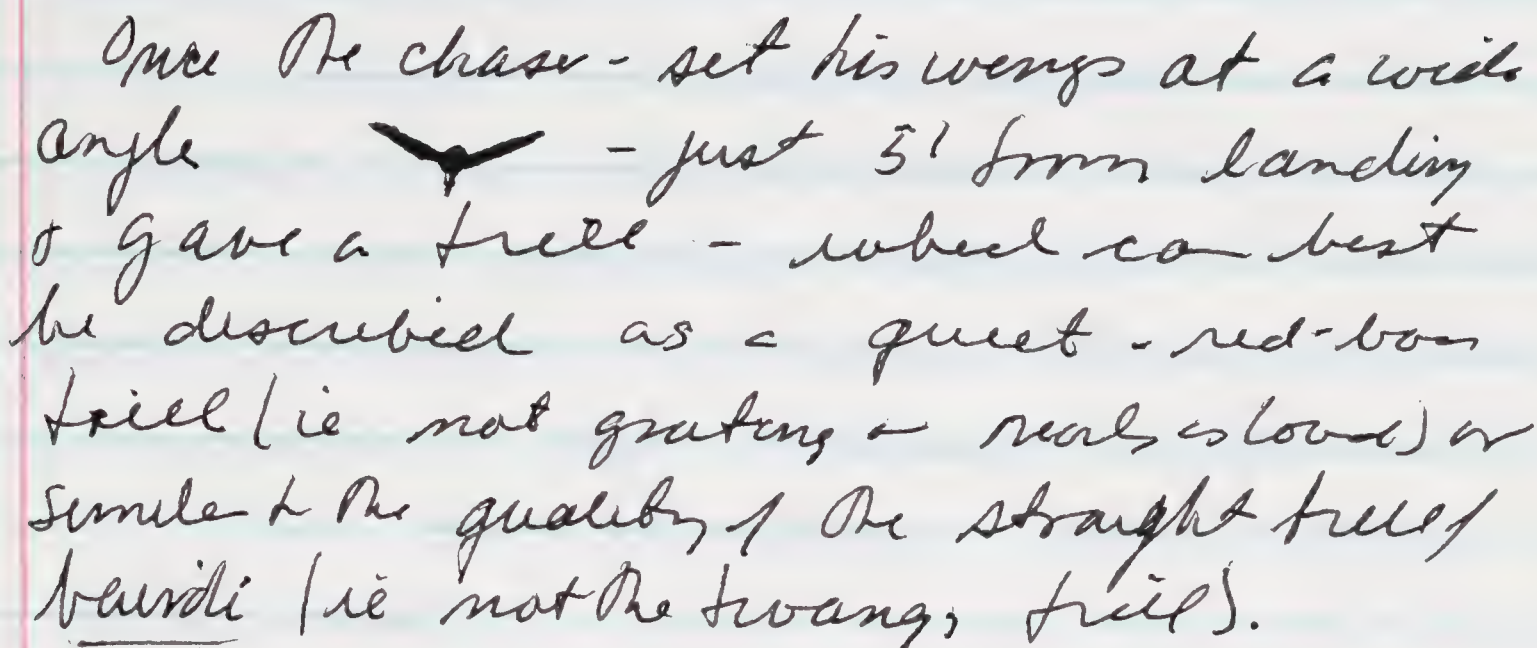 Once the chaser - set his wings at a wide
angle - just 5' from landing
& gave a trill - which can best
be described as a quiet - red-
trill (ie not grating or nearly as loud) or
similar to the quality of the straight trill of
bairdi (ie not the twangy trill).